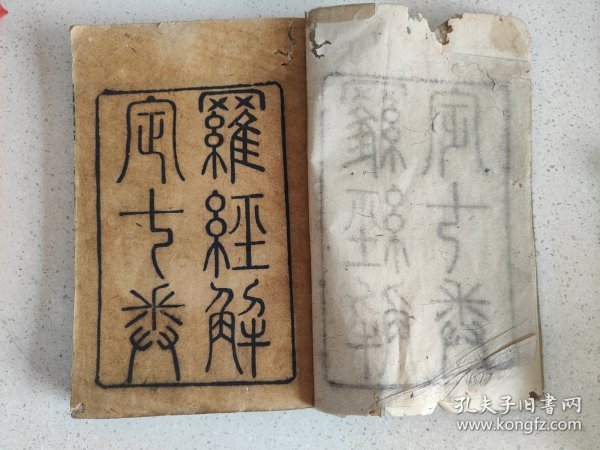 羅經解
定七卷
孔夫子旧書网
www.kongfz.com